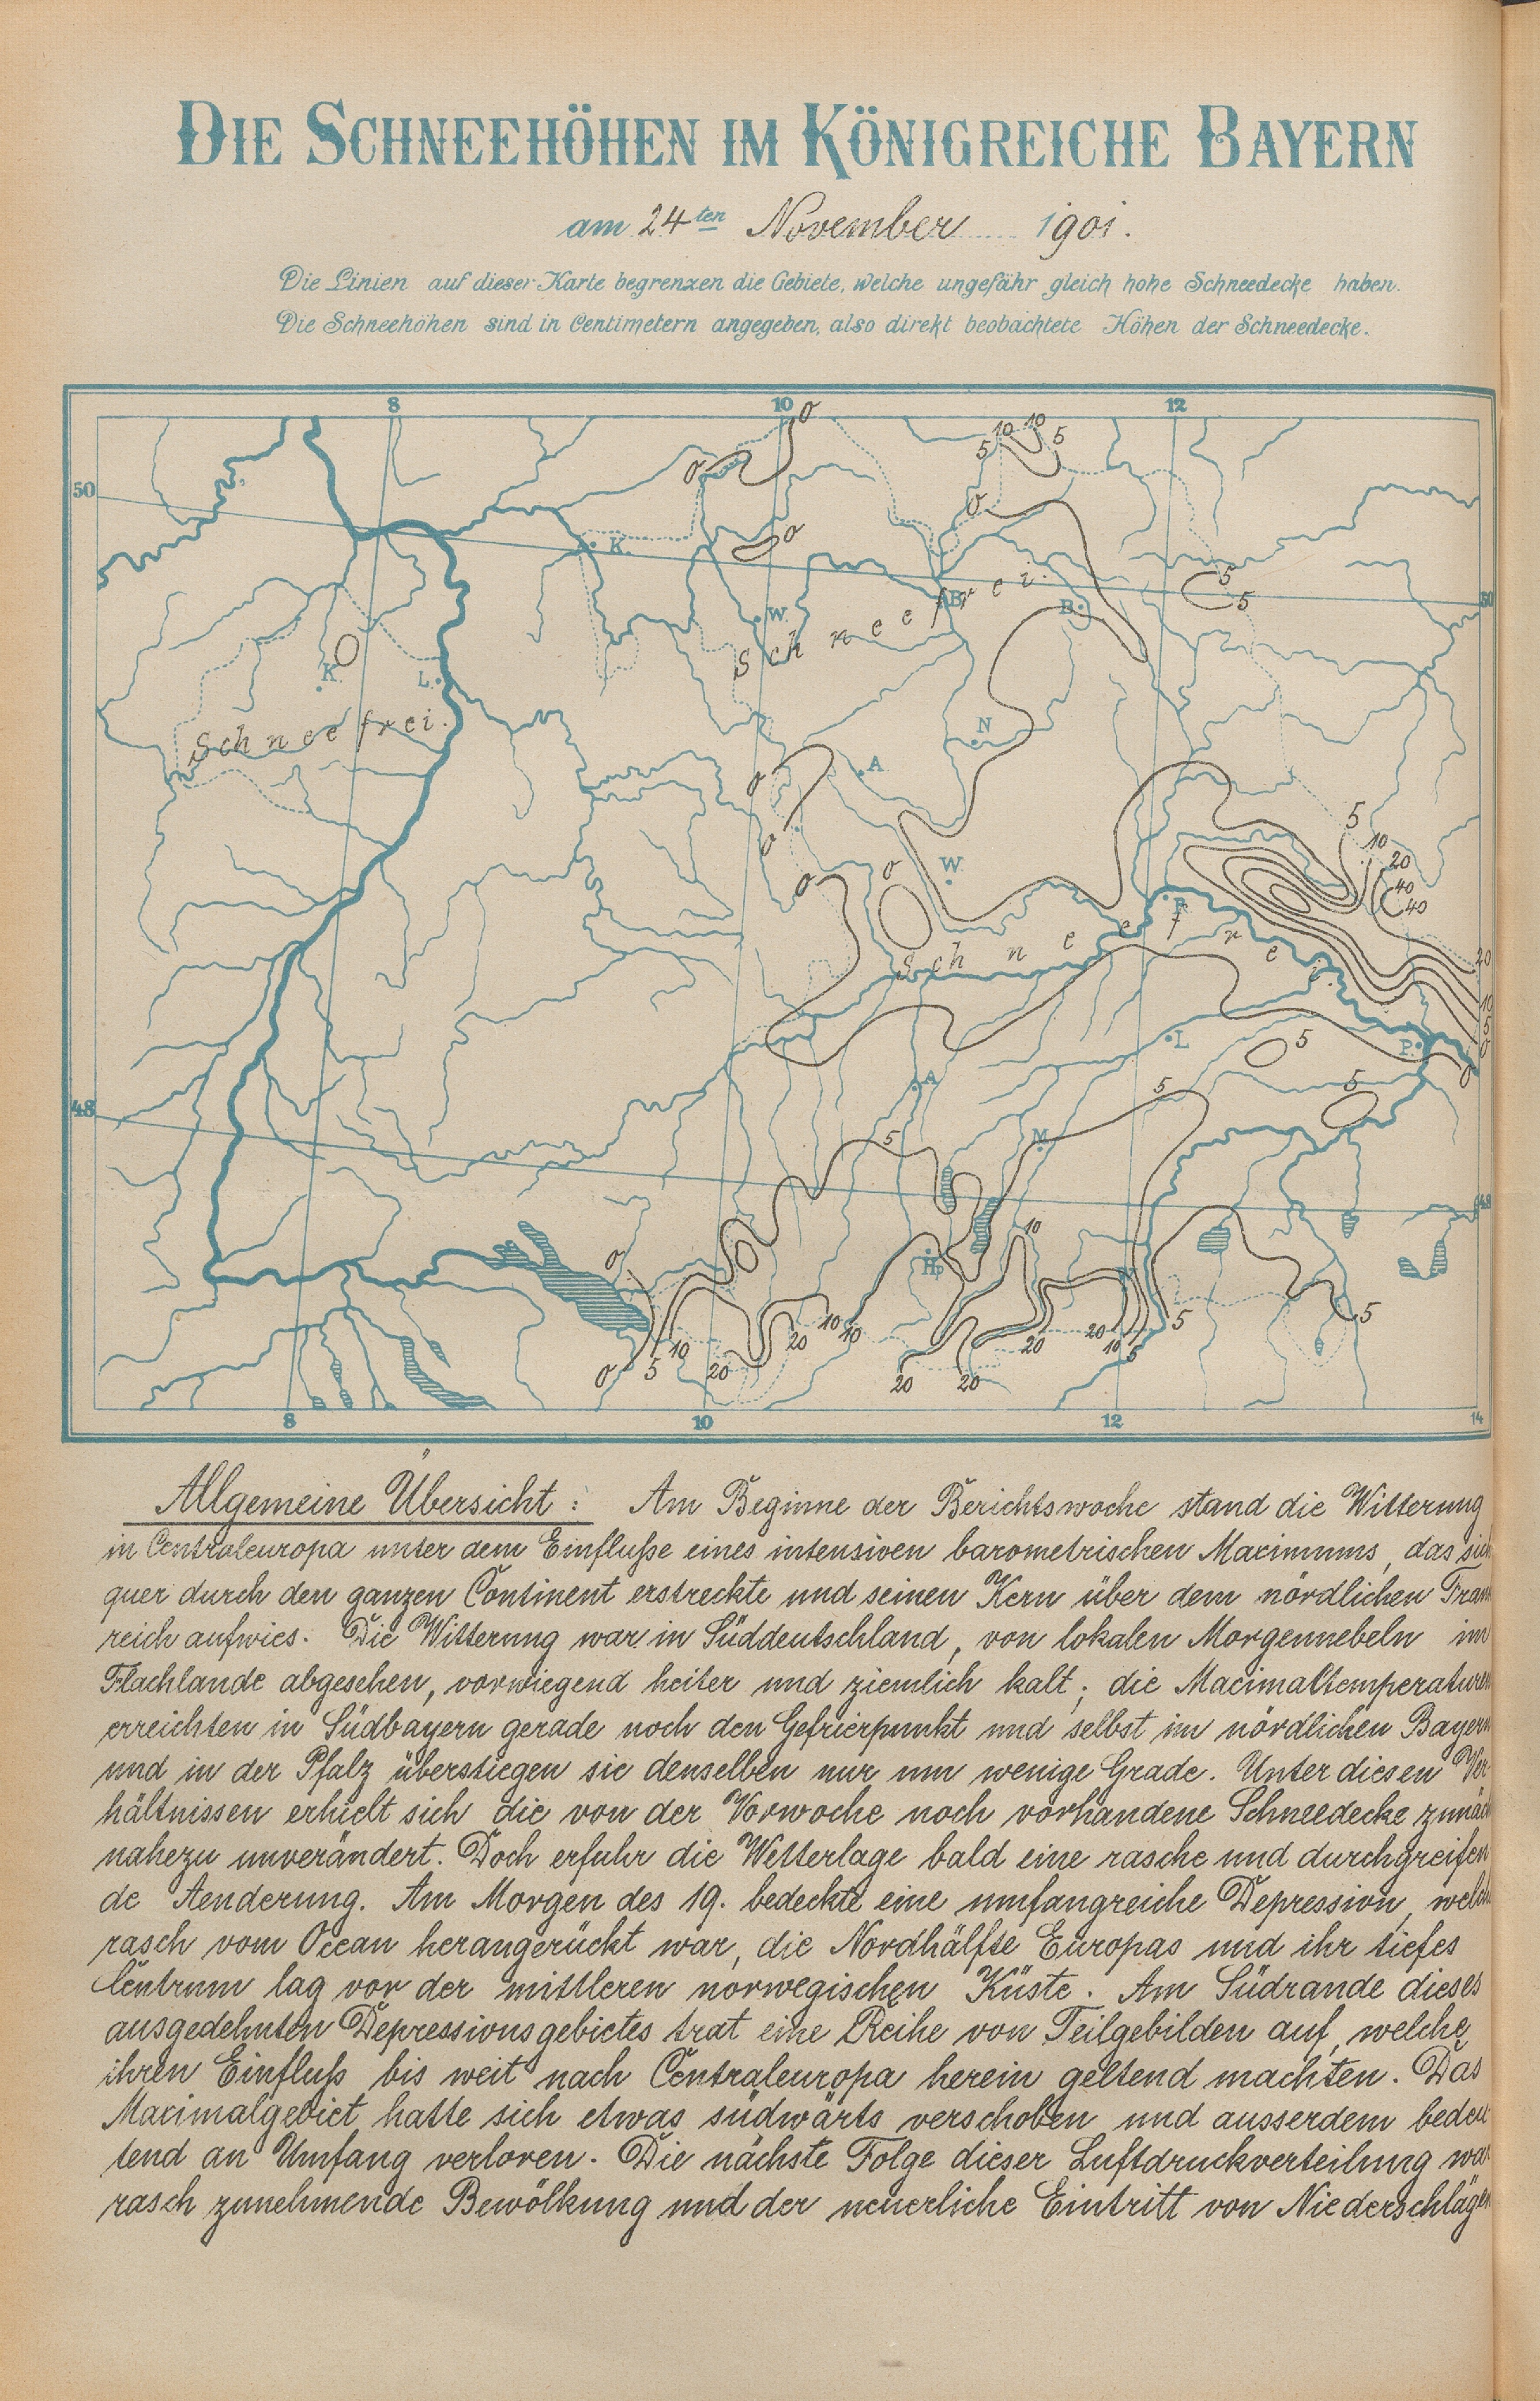 DIE SCHNEEHÖHEN IM KÖNIGREICHE BAYERN
am 24ten November 1901.
Die Linien auf dieser Karte begrenzen die Gebiete, welche ungefähr gleich hohe Schneedecke haben.
Die Schneehöhen sind in Centimetern angegeben, also direkt beobachtete Höhen der Schneedecke.
8 10 12
0
10 10
5 5
0
50
0
0
K.
5
5
50
B. B.
W.
Schneefrei.
K. L.
Schneefrei.
N
A.
0
0
5
10
20
40
40
W.
0 0
R.
Schneefrei.
20
10
5
0
L.
5
P.
0
A.
5
5
48
M.
5
48
10
0
Hp.
5
5
10 10
20
20
20 10
5
10
20
0 5
20 20
8 10 12 14
Allgemeine Übersicht: Am Beginne der Berichtswoche stand die Witterung
in Centraleuropa unter dem Einfluße eines intensiven barometrischen Maximums, das sich
quer durch den ganzen Continent erstreckte und seinen Kern über dem nördlichen Frank
reich aufwies. Die Witterung war in Süddeutschland, von lokalen Morgennebeln im
Flachlande abgesehen, vorwiegend heiter und ziemlich kalt; die Maximaltemperaturen
erreichten in Südbayern gerade noch den Gefrierpunkt und selbst im nördlichen Bayern
und in der Pfalz überstiegen sie denselben nur um wenige Grade. Unter diesen Ver-
hältnissen erhielt sich die von der Vorwoche noch vorhandene Schneedecke zunäch
nahezu unverändert. Doch erfuhr die Wetterlage bald eine rasche und durchgreifen
de Aenderung. Am Morgen des 19. bedeckte eine umfangreiche Depression, welche
rasch vom Ocean herangerückt war, die Nordhälfte Europas und ihr tiefes
Centrum lag vor der mittleren norwegischen Küste. Am Südrande dieses
ausgedehnten Depressionsgebietes trat eine Reihe von Teilgebilden auf, welche
ihren Einfluß bis weit nach Centraleuropa herein geltend machten. Das
Maximalgebiet hatte sich etwas südwärts verschoben und ausserdem bedeu
tend an Umfang verloren. Die nächste Folge dieser Luftdruckverteilung war
rasch zunehmende Bewölkung und der neuerliche Eintritt von Niederschlägen